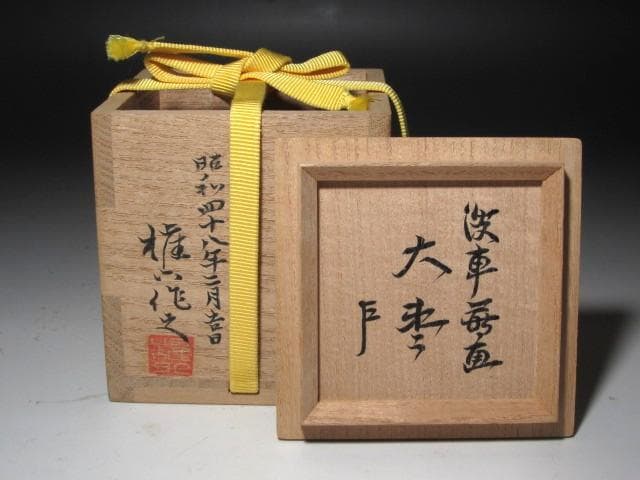 波車蒔画
大棗
昭和四十八年二月吉日
権六作之